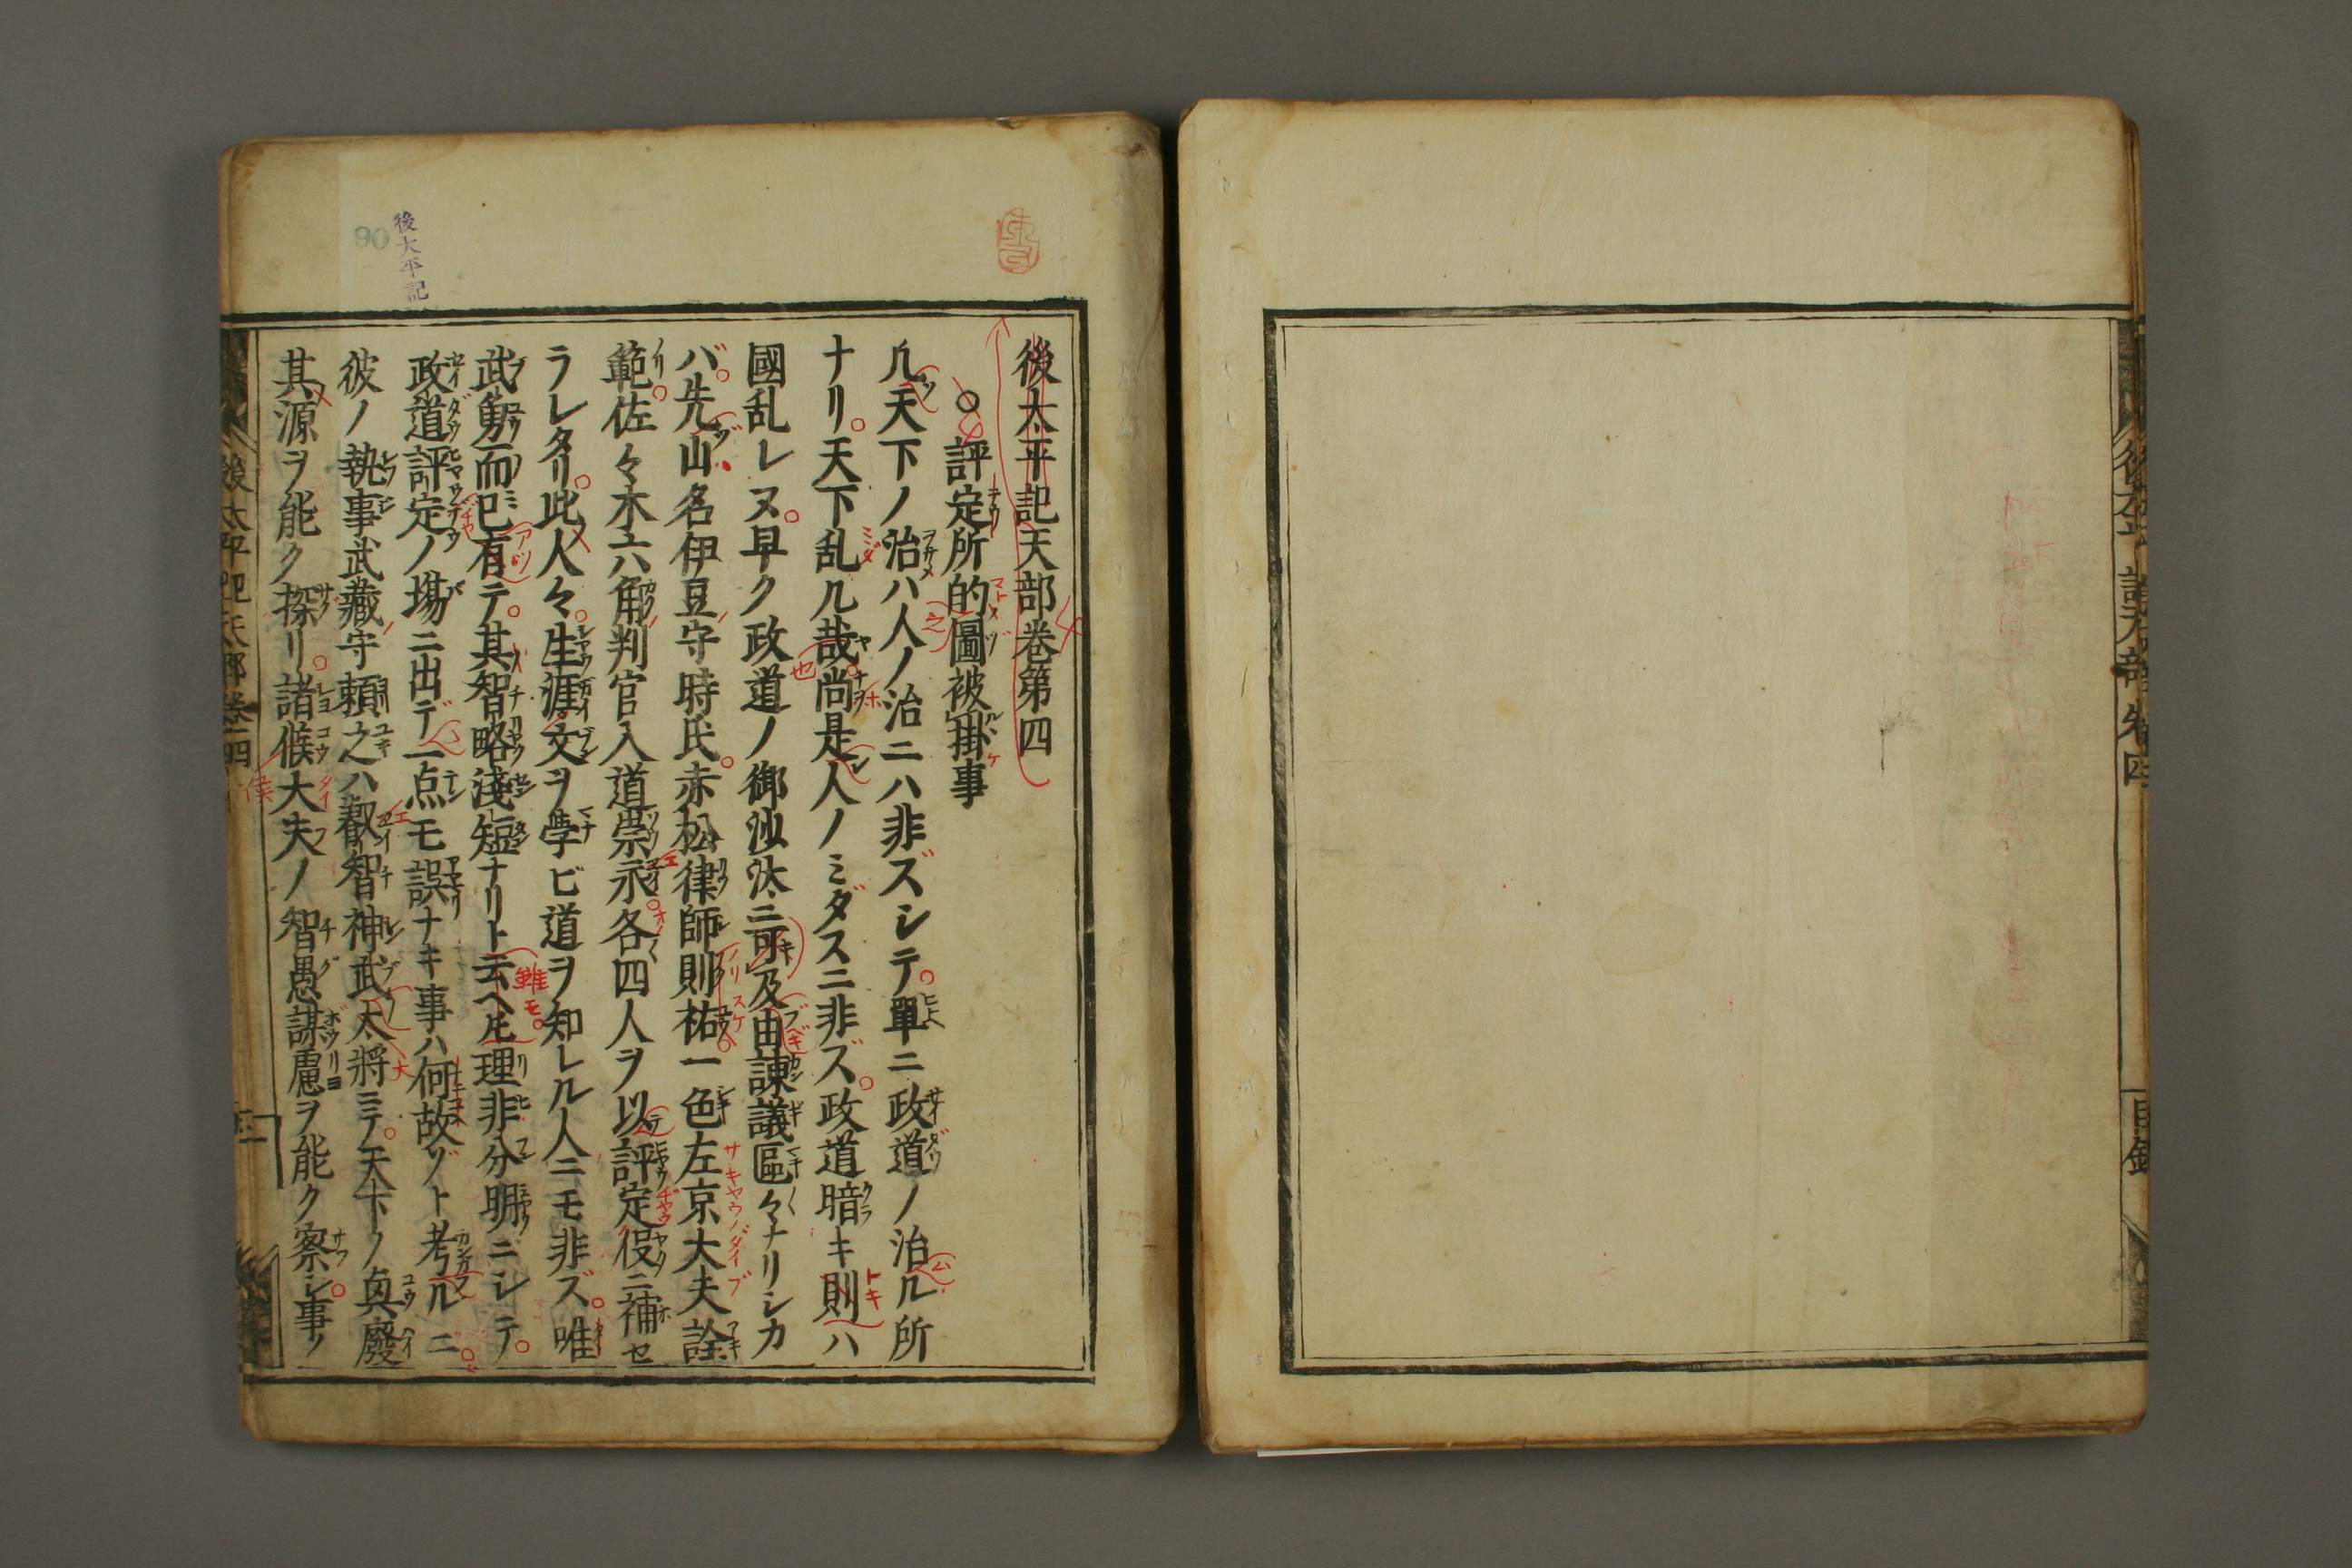 後太平記天部巻第四
○評定所的圖被掛事
凡天下ノ治ハ人ノ治ニハ非ズシテ單ニ政道ノ治ル所
ナリ天下乱凡哉尚是人ノミダスニ非ズ政道暗キ則ハ
國乱レヌ早ク政道ノ御沙汰ニ可及由諌議區々ナリシカ
バ先山名伊豆守時氏赤松律師則祐一色左京大夫詮
範佐々木六角判官入道崇永各四人ヲ以評定役ニ補セ
ラレタリ此人々生涯文ヲ學ビ道ヲ知レル人ニモ非ズ唯
武勇而已有テ其智略淺短ナリト云ヘ𪜈理非分明ニシテ
政道評定ノ場ニ出デ一点モ誤ナキ事ハ何故ゾト考ルニ
彼ノ執事武藏守頼之ハ叡智神武太將ニテ天下ノ興廢
其源ヲ能ク探リ諸候大夫ノ智愚謀慮ヲ能ク察シ事ノ
後太平記天部巻四
後大平記
90
目録